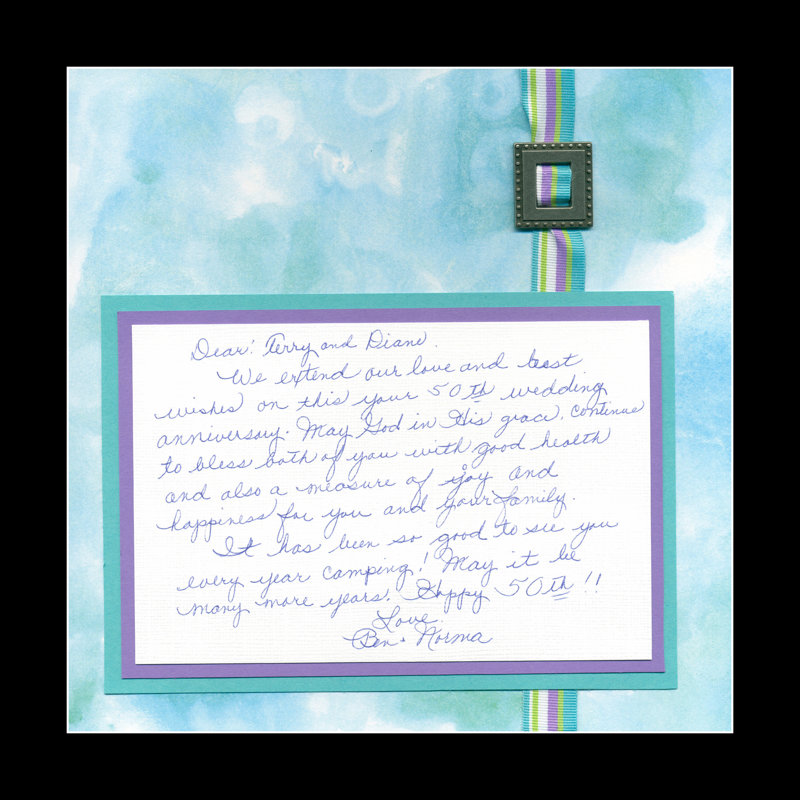 Dear! Terry and Diane.
We extend our love and best
wishes on this your 50th wedding
anniversary. May God in His grace, continue
to bless both of you with good health
and also a measure of joy and
happiness for you and your family.
It has been so good to see you
every year camping! May it be
many more years! Happy 50th!!
Love
Ben + Norma